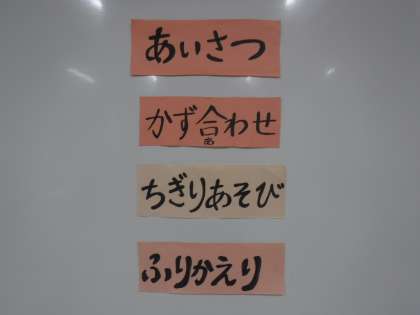 あいさつ
かず合わせ
ちぎりあそび
ふりかえり